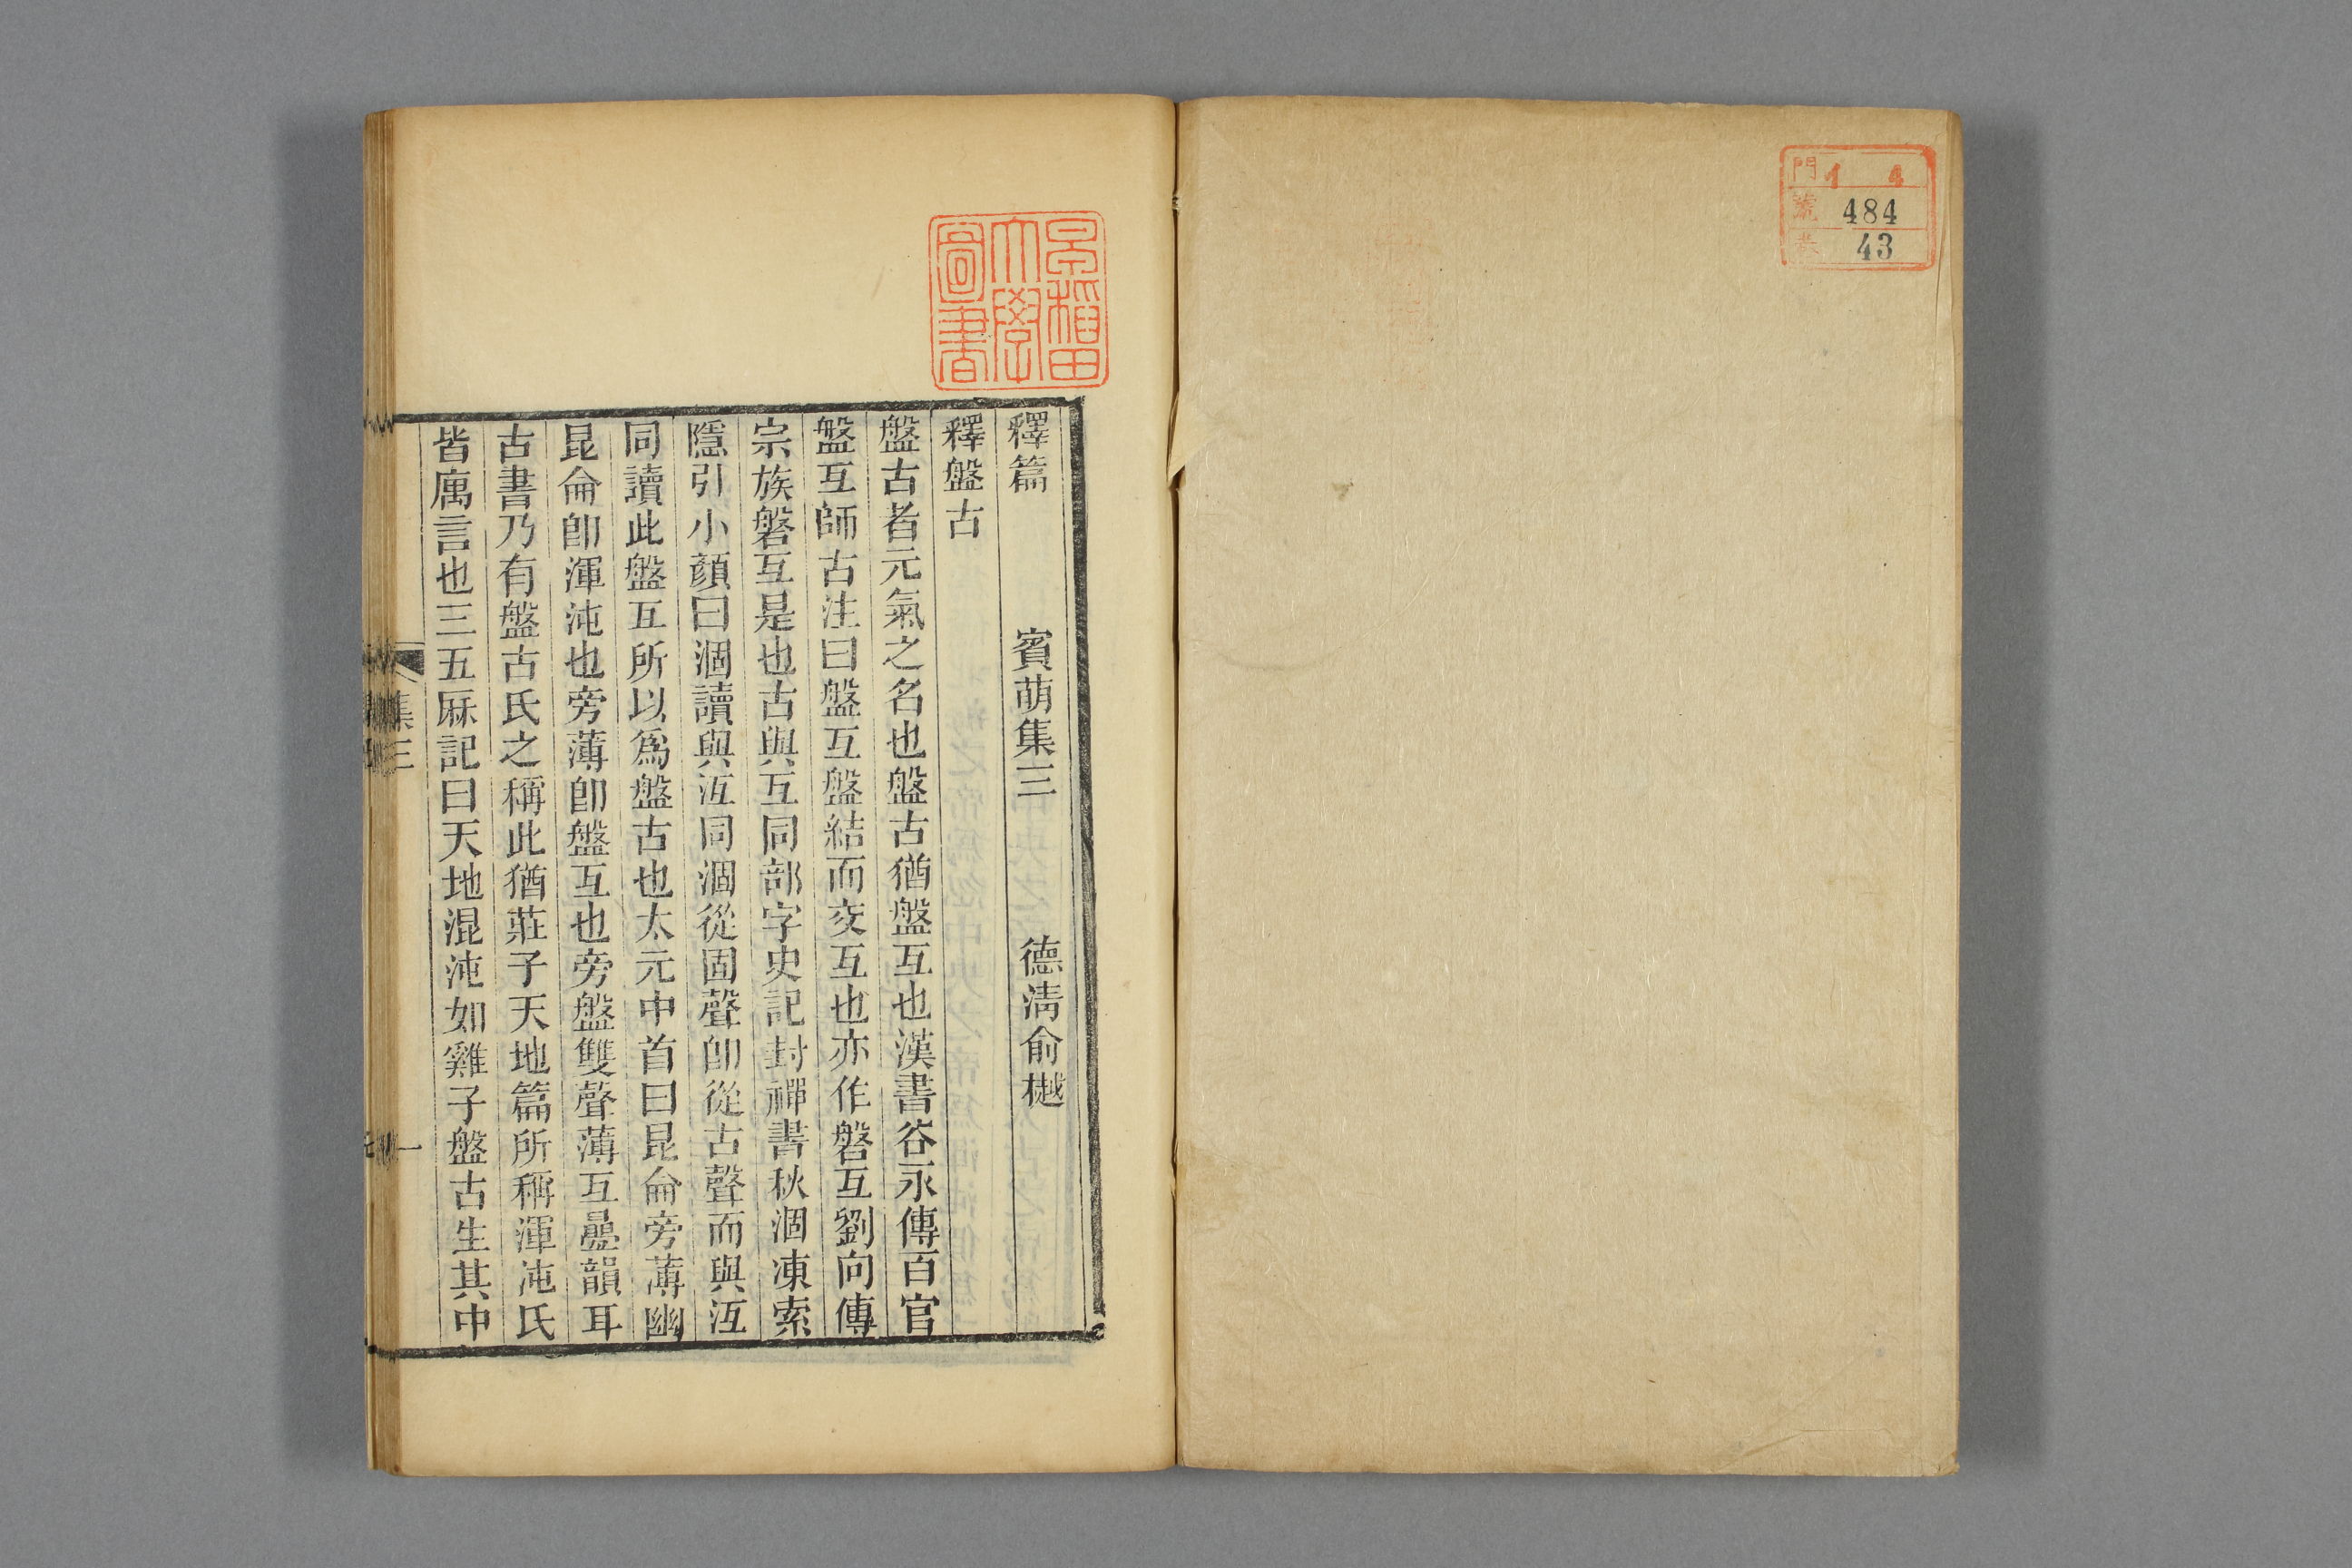 門 14
號 484
卷 43
早稲田
大學
圖書
釋篇 賓萌集三 德淸俞樾
釋盤古
盤古者元氣之名也盤古猶盤互也漢書谷永傳百官
盤互師古注曰盤互盤結而交互也亦作磐互劉向傳
宗族磐互是也古與互同部字史記封禪書秋涸凍索
隱引小顏曰涸讀與沍同涸從固聲卽從古聲而與沍
同讀此盤互所以爲盤古也太元中首曰昆侖旁薄幽
昆侖卽渾沌也旁薄卽盤互也旁盤雙聲薄互曡韻耳
古書乃有盤古氏之稱此猶莊子天地篇所稱渾沌氏
皆寓言也三五厤記曰天地混沌如雞子盤古生其中
集三
一